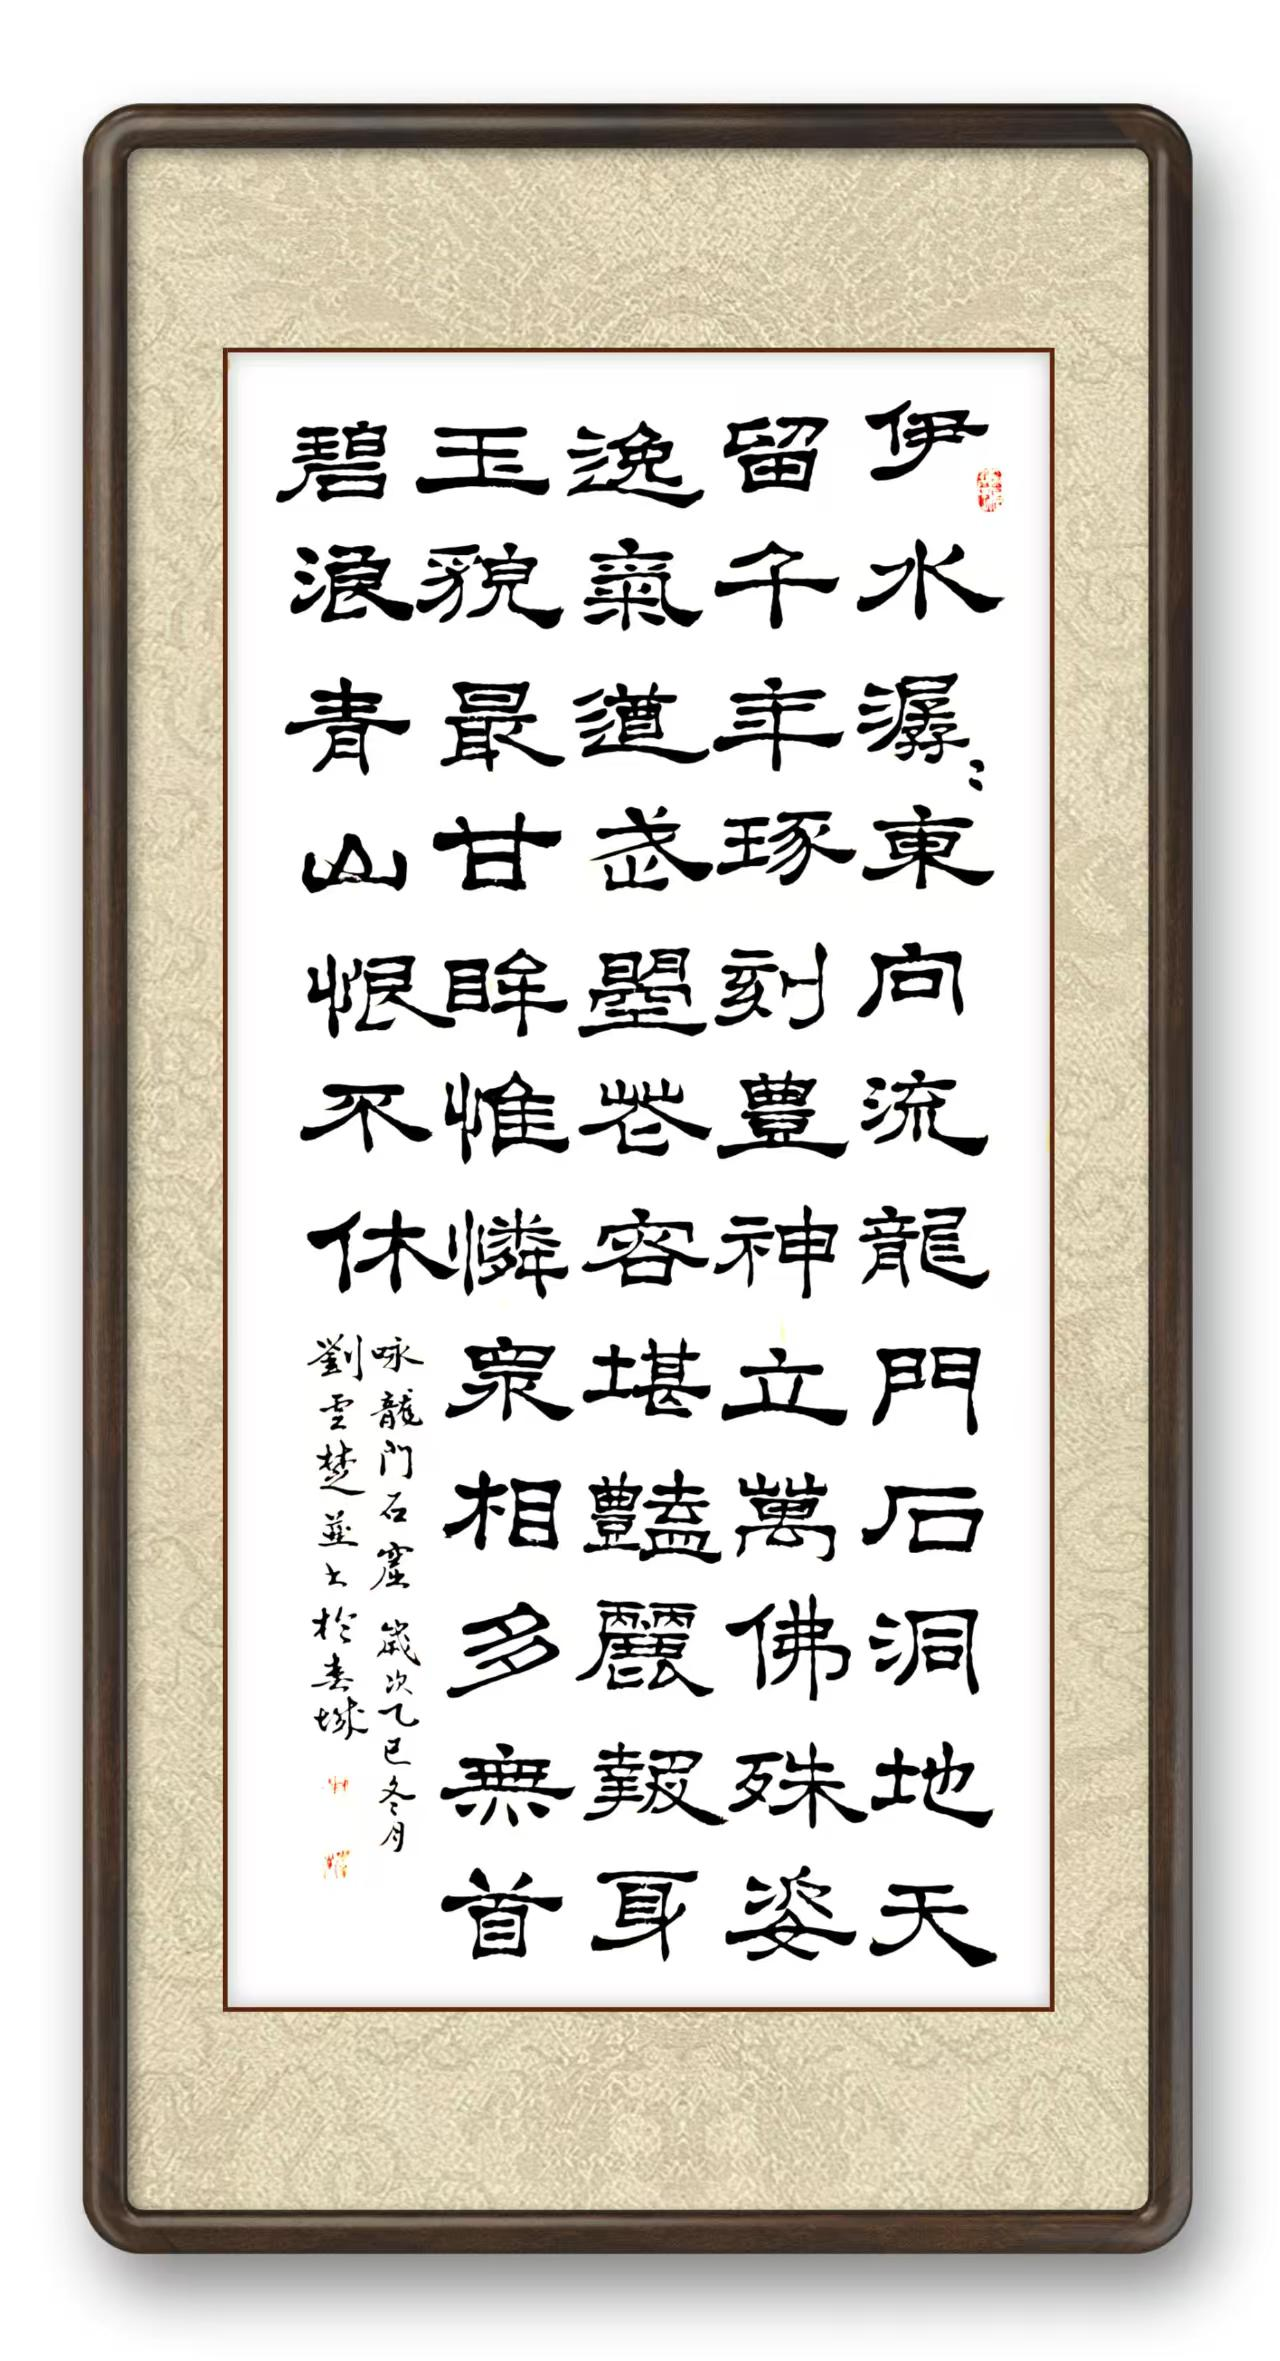 伊水潺〻東向流龍門石洞地天
留千年琢刻豊神立萬佛殊姿
逸氣遒武曌花容堪豔麗報身
玉貌最甘眸惟憐眾相多無首
碧浪青山恨不休
咏龍门石窟 歲次乙巳冬月
劉雲楚並书於春城